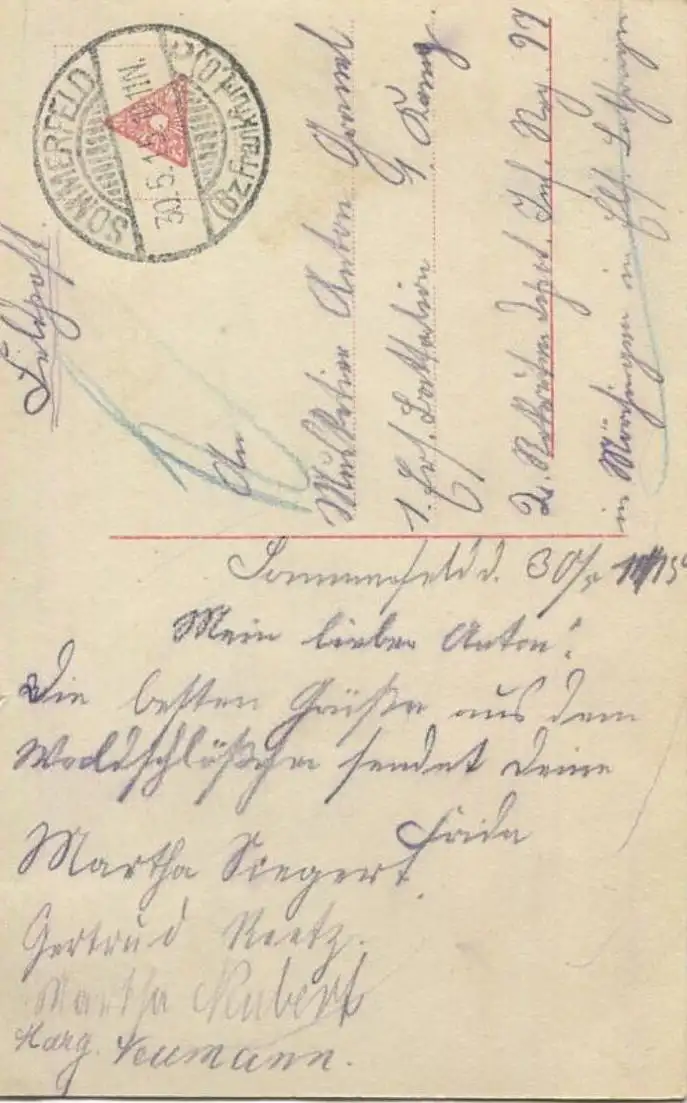 SOMMERFELD
(Bz. Frankfurt, O.)
30.5.15. 
Feldpost.
An
Musketier Anton
1. Ers. Battalion 4 Komp.
2. Rekruten Depot. Inf. Reg. 97
in Mörchingen in Els. Lothringen
Sommerfeld d. 30/5 1915
Mein lieber Anton!
Die besten Grüße aus dem
Waldschlößchen sendet deine
Frida
Martha Siegert.
Gertrud Reetz.
Martha
Marg. Neumann.